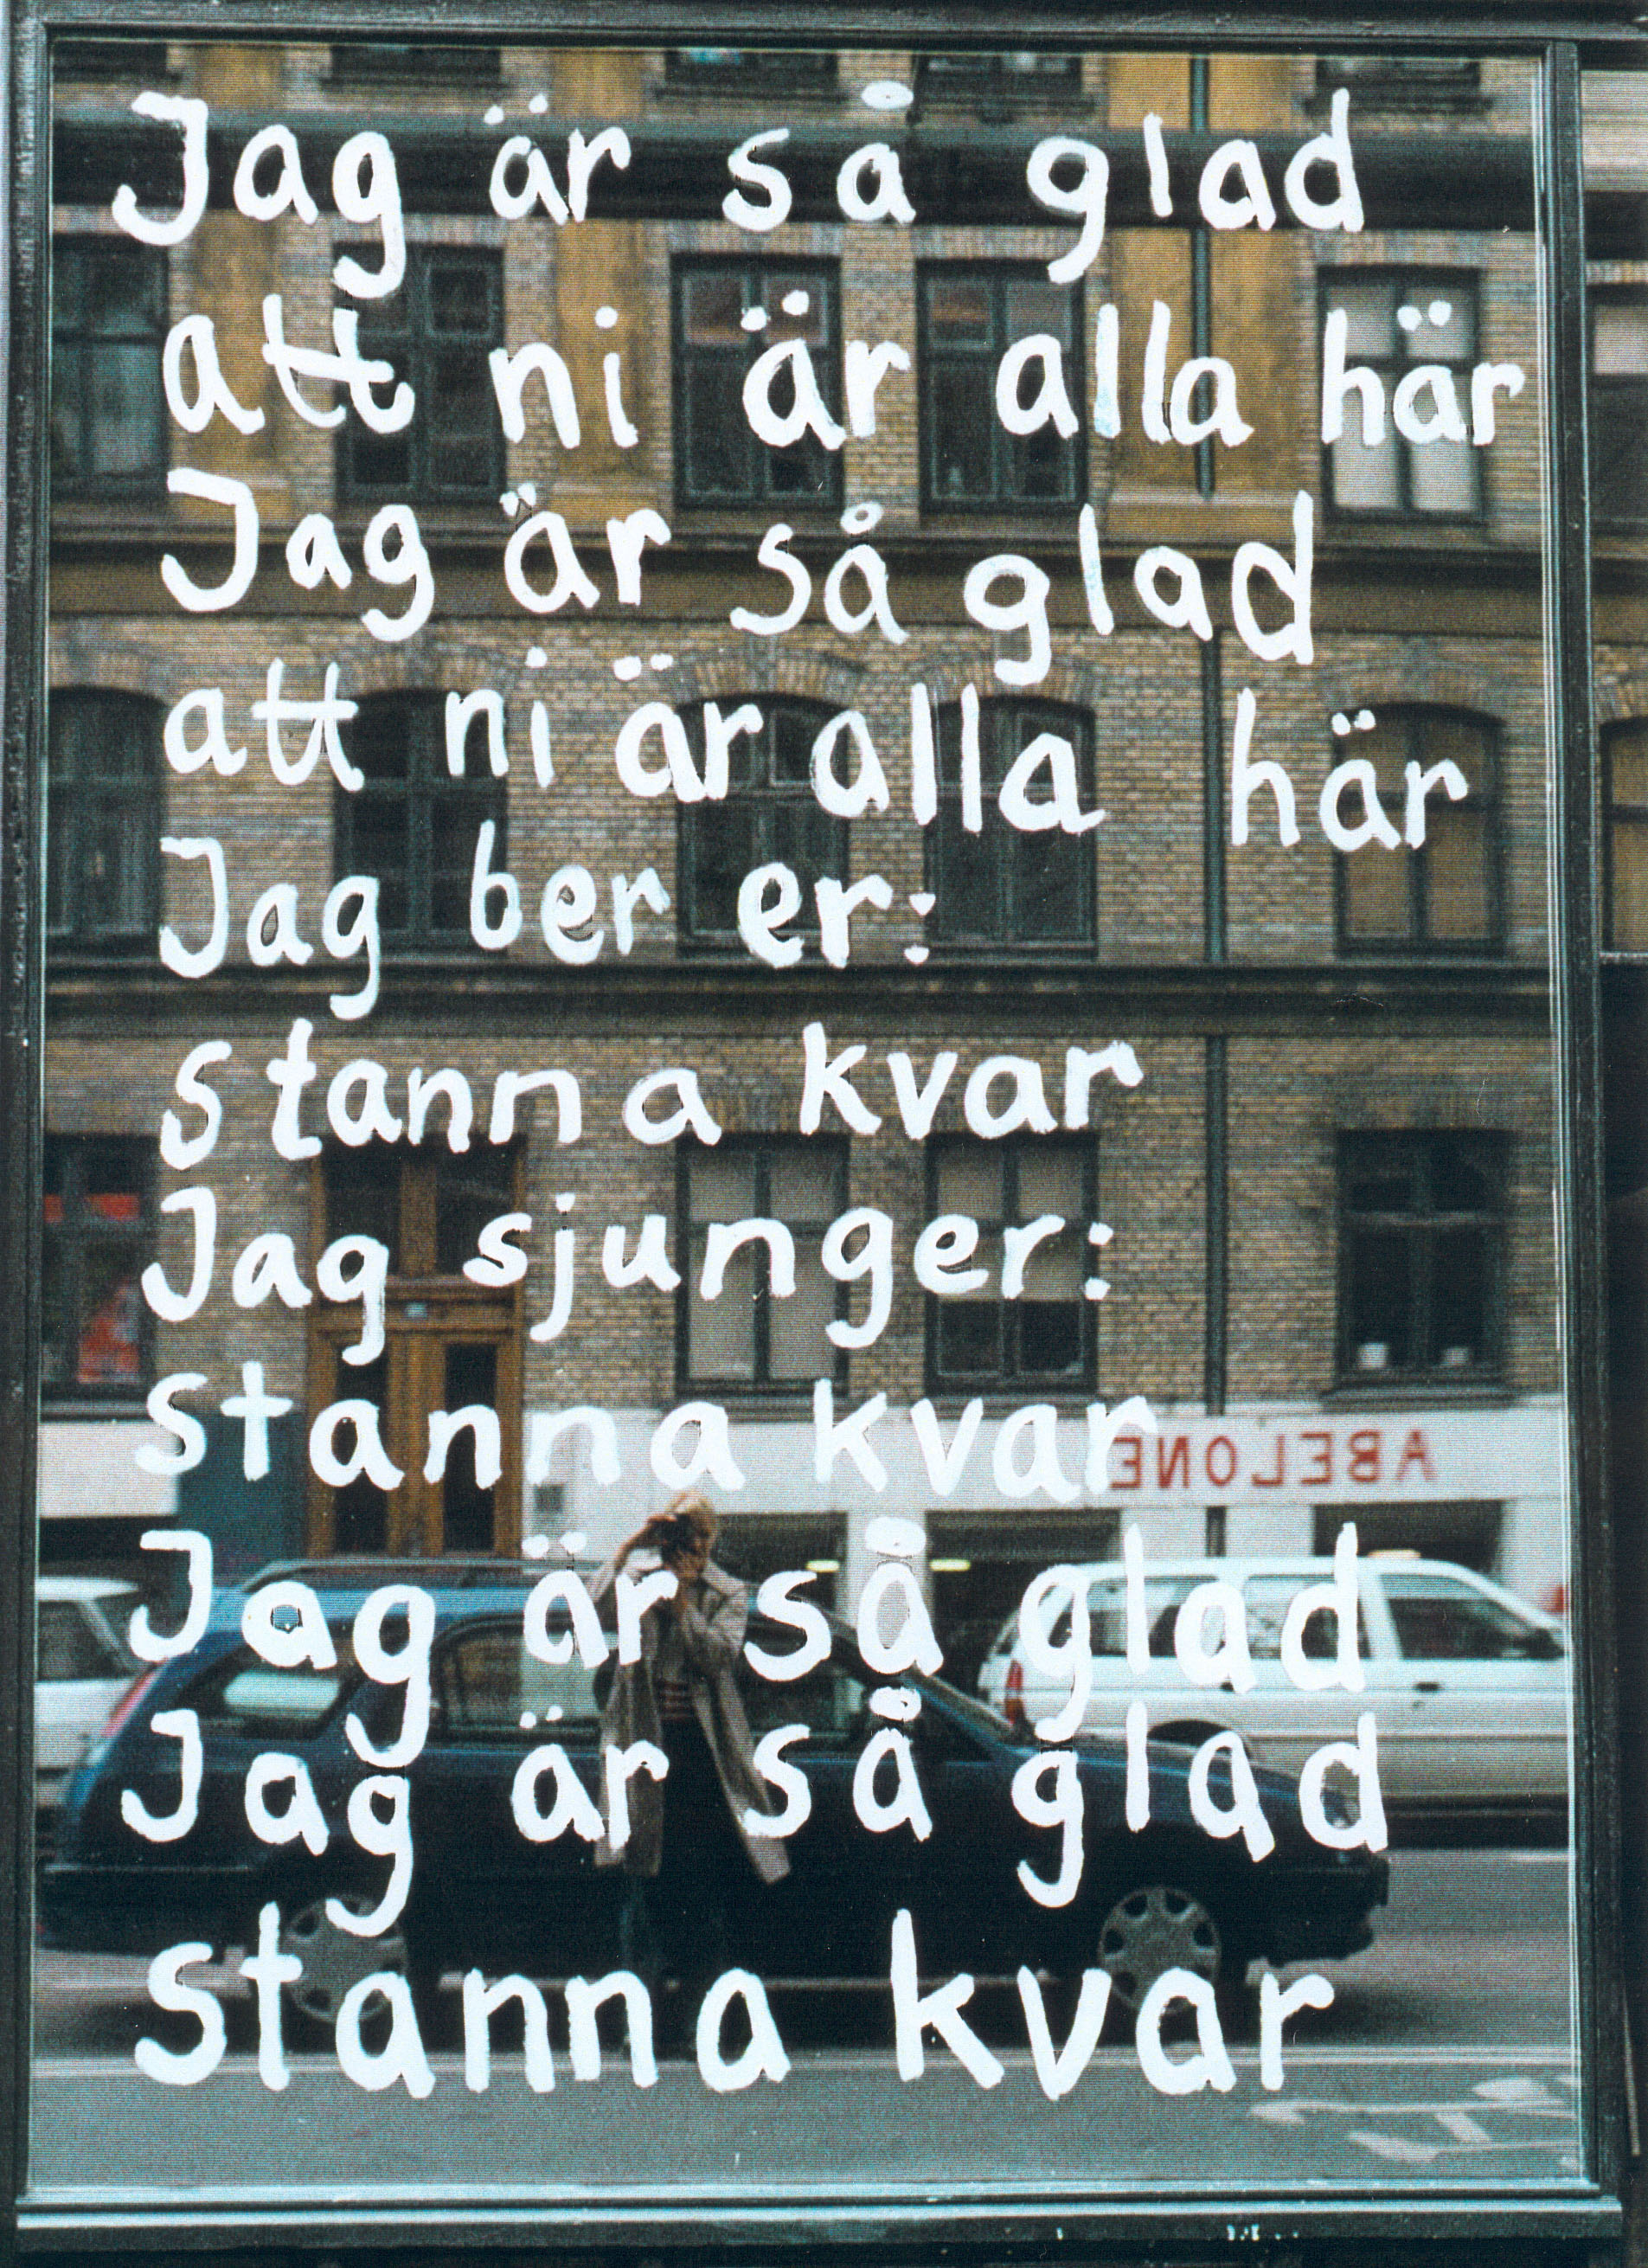 Jag är så glad
att ni är alla här
Jag är så glad
att ni är alla här
Jag ber er:
stanna kvar
Jag sjunger:
stanna kvar
ABELONE
Jag är så glad
Jag är så glad
stanna kvar